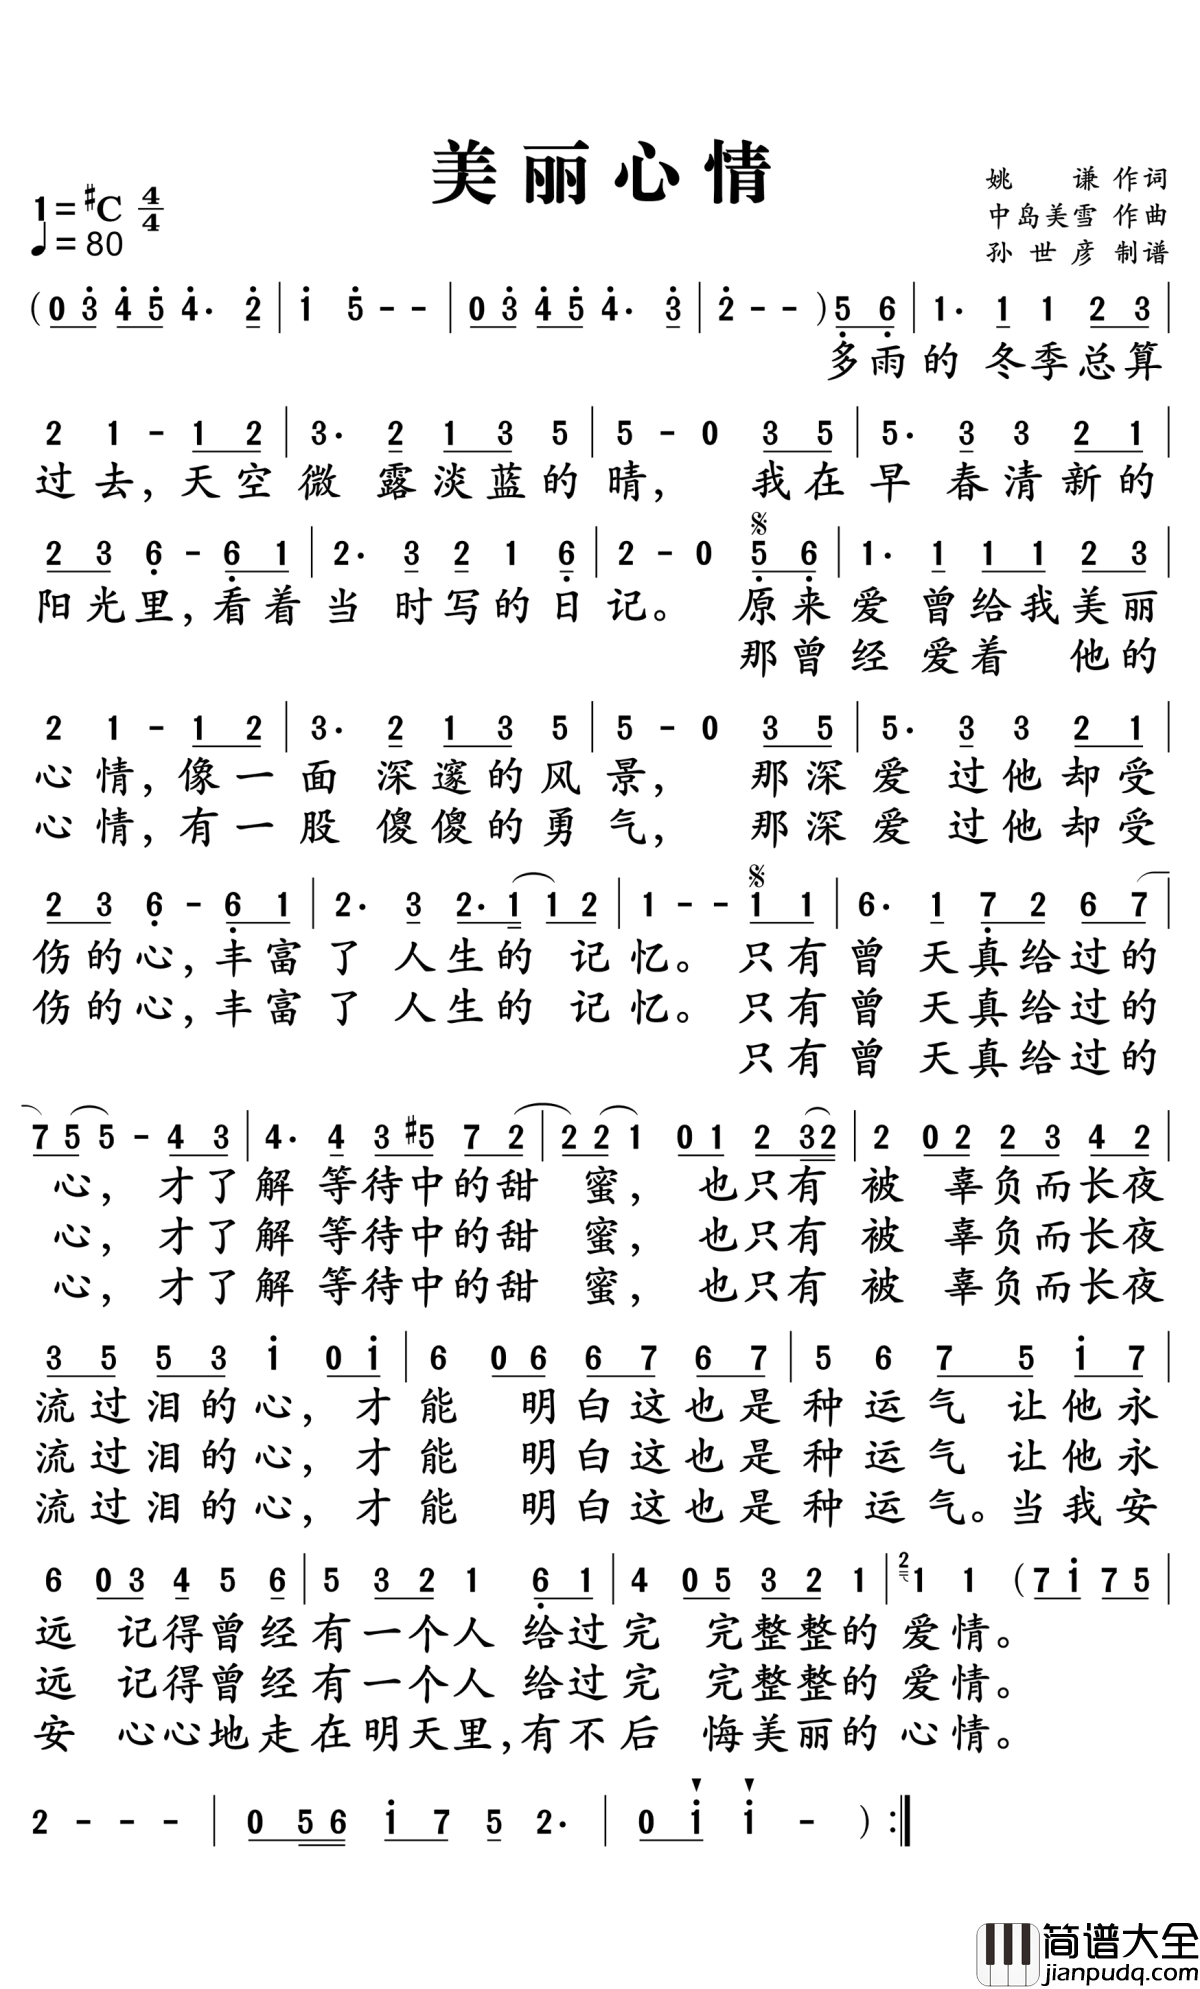 美丽心情
姚 谦 作词
1=#C 4/4
中岛美雪 作曲
♩=80
孙世彦 制谱
(0 3 4 5 4. 2 | 1 5 - - | 0 3 4 5 4. 3 | 2 - - )5 6 | 1. 1 1 2 3 |
多雨的 冬季总算
2 1 - 1 2 | 3. 2 1 3 5 | 5 - 0 3 5 | 5. 3 3 2 1 |
过去,天空微 露淡蓝的晴, 我在早 春清新的
𝄋
2 3 6 - 6 1 | 2. 3 2 1 6 | 2 - 0 5 6 | 1. 1 1 1 2 3 |
阳光里,看着当 时写的日记。 原来爱 曾给我美丽
那曾经 爱着 他的
2 1 - 1 2 | 3. 2 1 3 5 | 5 - 0 3 5 | 5. 3 3 2 1 |
心情,像一面 深邃的风景, 那深爱 过他却受
心情,有一股 傻傻的勇气, 那深爱 过他却受
𝄋
2 3 6 - 6 1 | 2. 3 2. 1 1 2 | 1 - - 1 1 | 6. 1 7 2 6 7 |
伤的心,丰富了 人生的 记忆。只有曾 天真给过的
伤的心,丰富了 人生的 记忆。只有曾 天真给过的
只有曾 天真给过的
7 5 5 - 4 3 | 4. 4 3 #5 7 2 | 2 2 1 0 1 2 3 2 | 2 0 2 2 3 4 2 |
心, 才了解 等待中的甜 蜜, 也只有 被 辜负而长夜
心, 才了解 等待中的甜 蜜, 也只有 被 辜负而长夜
心, 才了解 等待中的甜 蜜, 也只有 被 辜负而长夜
3 5 5 3 1 0 1 | 6 0 6 6 7 6 7 | 5 6 7 5 1 7 |
流过泪的心, 才能 明白这也是种运气 让他永
流过泪的心, 才能 明白这也是种运气 让他永
流过泪的心, 才能 明白这也是种运气。当我安
6 0 3 4 5 6 | 5 3 2 1 6 1 | 4 0 5 3 2 1 | 2 1 1 (7 1 7 5 |
远 记得曾经有一个人 给过完 完整整的 爱情。
远 记得曾经有一个人 给过完 完整整的 爱情。
安 心心地走在明天里,有不后 悔美丽的 心情。
2 - - - | 0 5 6 1 7 5 2. | 0 1 1 - ) :‖
简谱大全
jianpudq.com